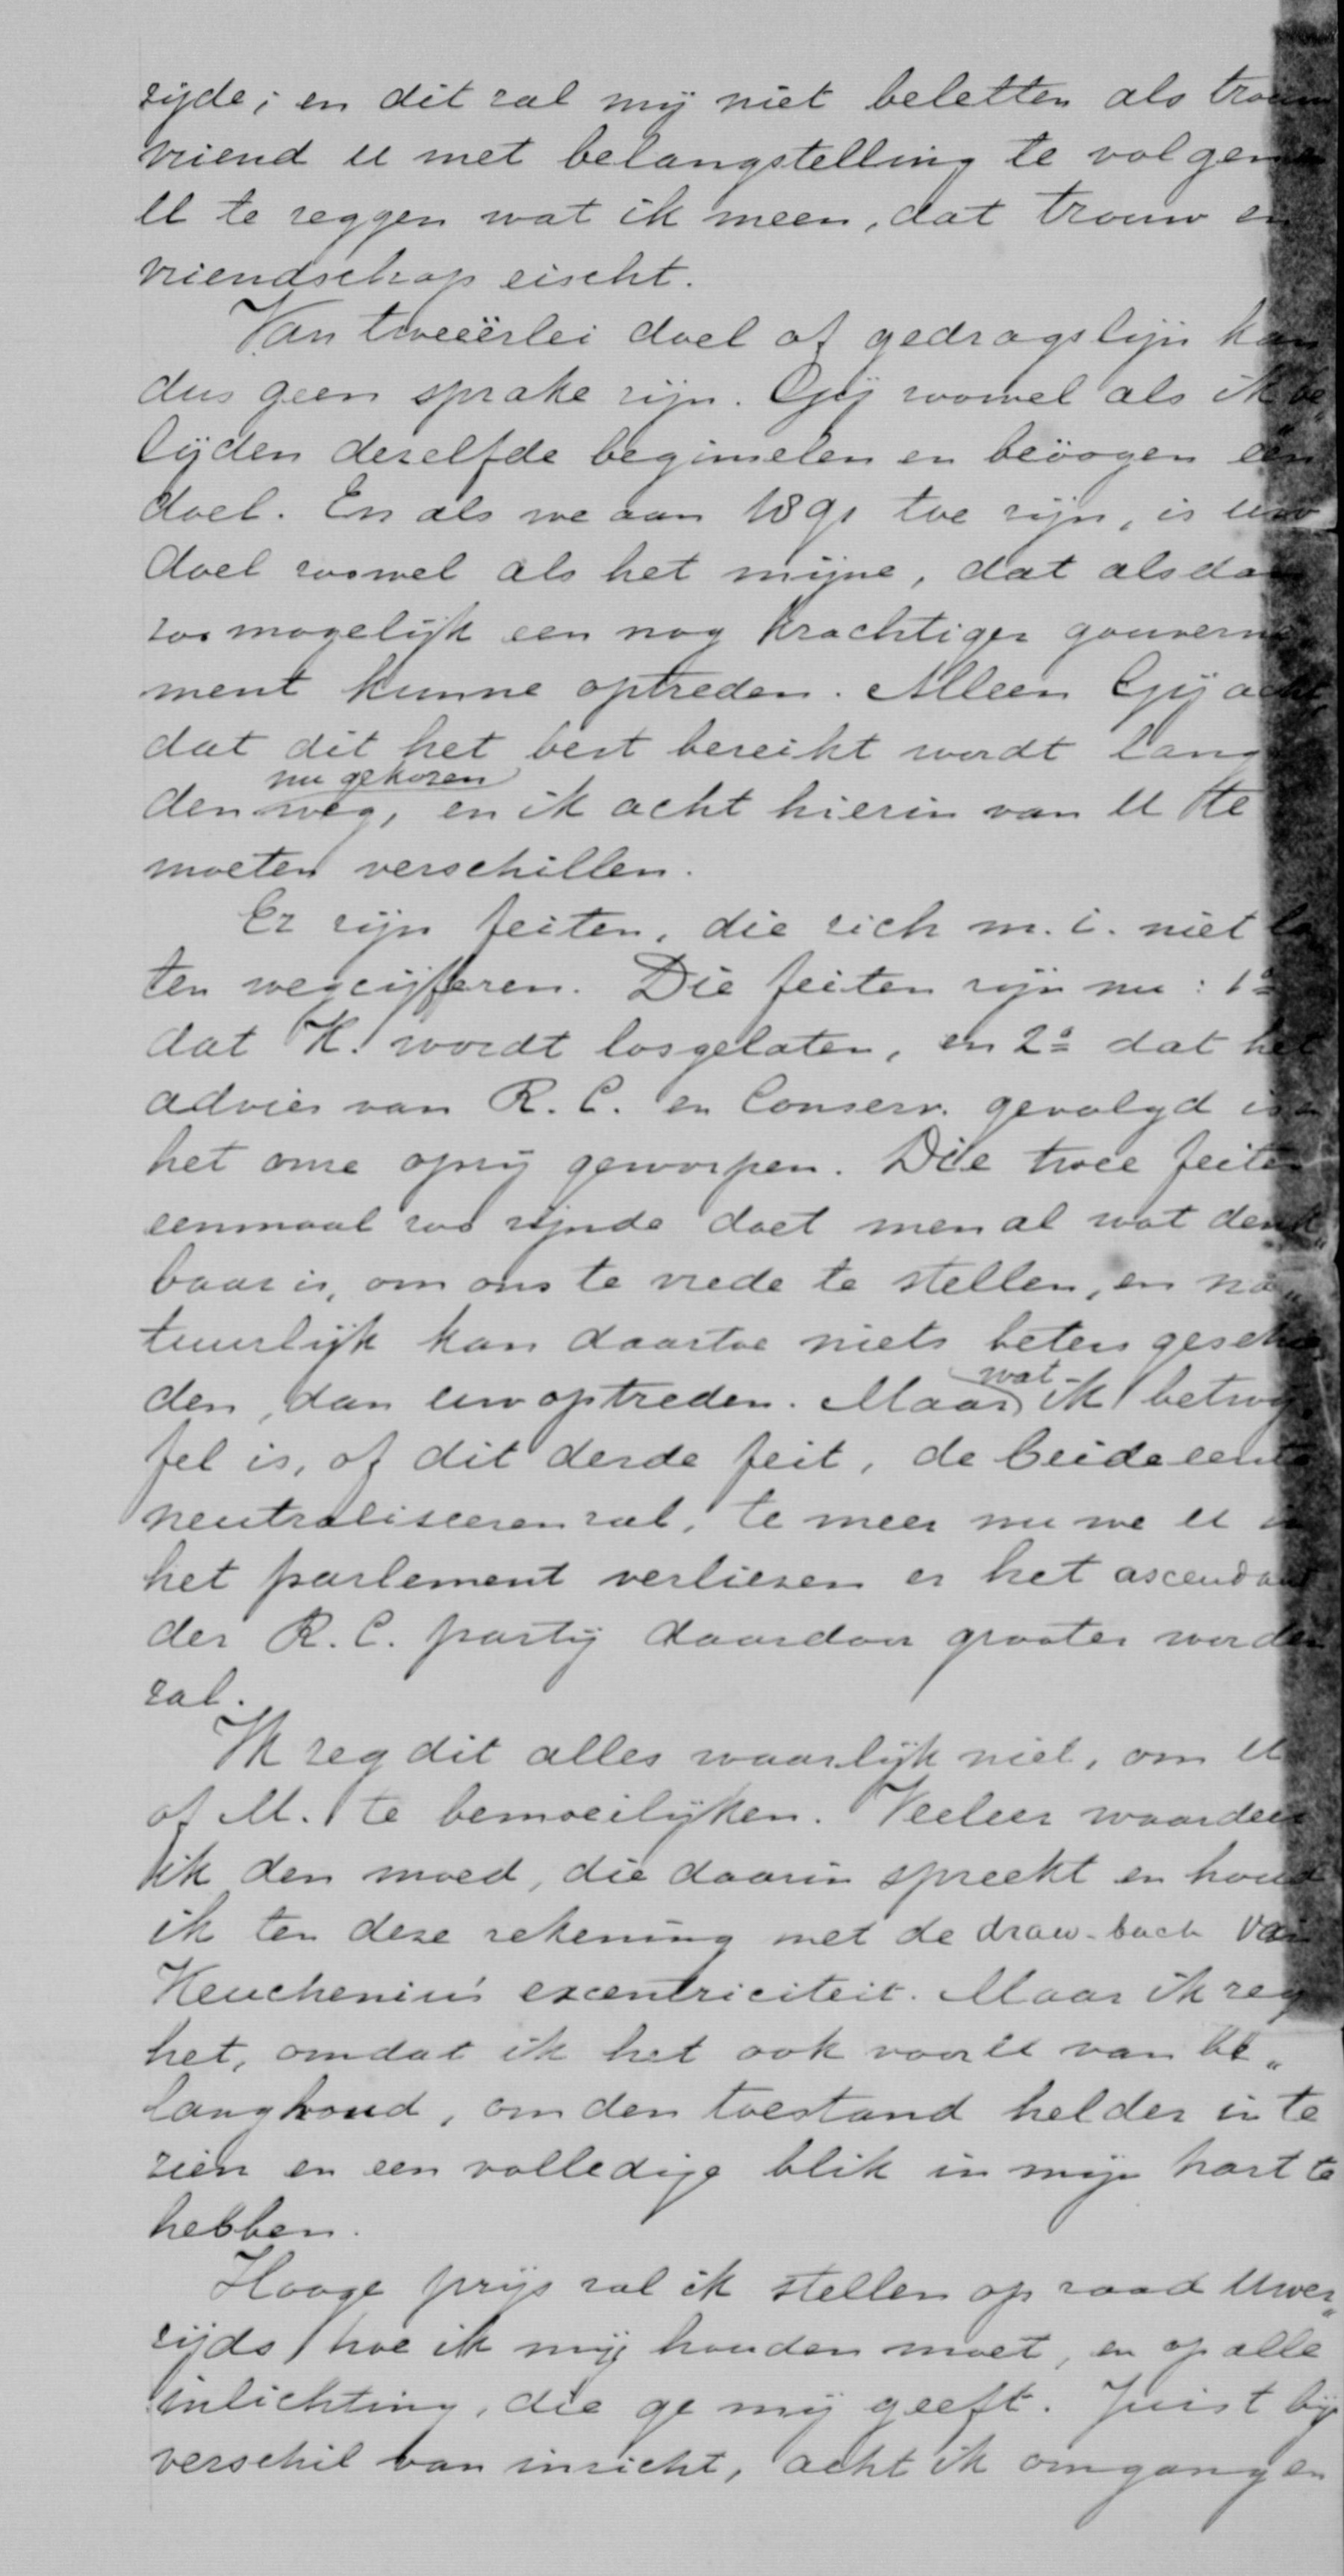 zijde; en dit zal mij niet beletten als trouw
vriend U met belangstelling te volgen
U te zeggen wat ik meen, dat trouw en
vriendschap eischt.
Van tweeërlei doel of gedragslijn kan
dus geen sprake zijn. Gij zoowel als ik be„
lijden dezelfde beginselen en beöogen één
doel. En als we aan 1891 toe zijn, is uw
doel zoowel als het mijne, dat alsdan
zoo mogelijk een nog krachtiger gouverne„
ment kunne optreden. Alleen Gij acht,
dat dit het best bereikt wordt langs
den nu gekozen weg, en ik acht hierin van U te
moeten verschillen.
Er zijn feiten, die zich m. i. niet la
ten wegcijferen. Die feiten zijn nu: 1º
dat K. wordt losgelaten, en 2º dat het
advies van R. C. en Conserv. gevolgd is en
het onze opzij geworpen. Die twee feiten
eenmaal zoo zijnde doet men al wat denk„
baar is, om ons te vrede te stellen, en na„
tuurlijk kan daartoe niets beters geschie
den, dan uw optreden. Maar wat ik betwij
fel is, of dit derde feit, de beide eerste
neutraliseeren zal, te meer nu we U in
het parlement verliezen er het ascendant
der R. C. partij daardoor grooter worden
zal.
Ik zeg dit alles waarlijk niet, om U
of M. te bemoeilijken. Veeleer waardeer
ik den moed, die daarin spreekt en houd
ik ten deze rekening met de draw-back van
Keuchenius' excentriciteit. Maar ik zeg
het, omdat ik het ook voor U van be„
lang houd, om den toestand helder in te
zien en een volledige blik in mijn hart te
hebben.
Hooge prijs zal ik stellen op raad Uwer„
zijds hoe ik mij houden moet, en op alle
inlichting, die ge mij geeft. Juist bij
verschil van inzicht, acht ik omgang en